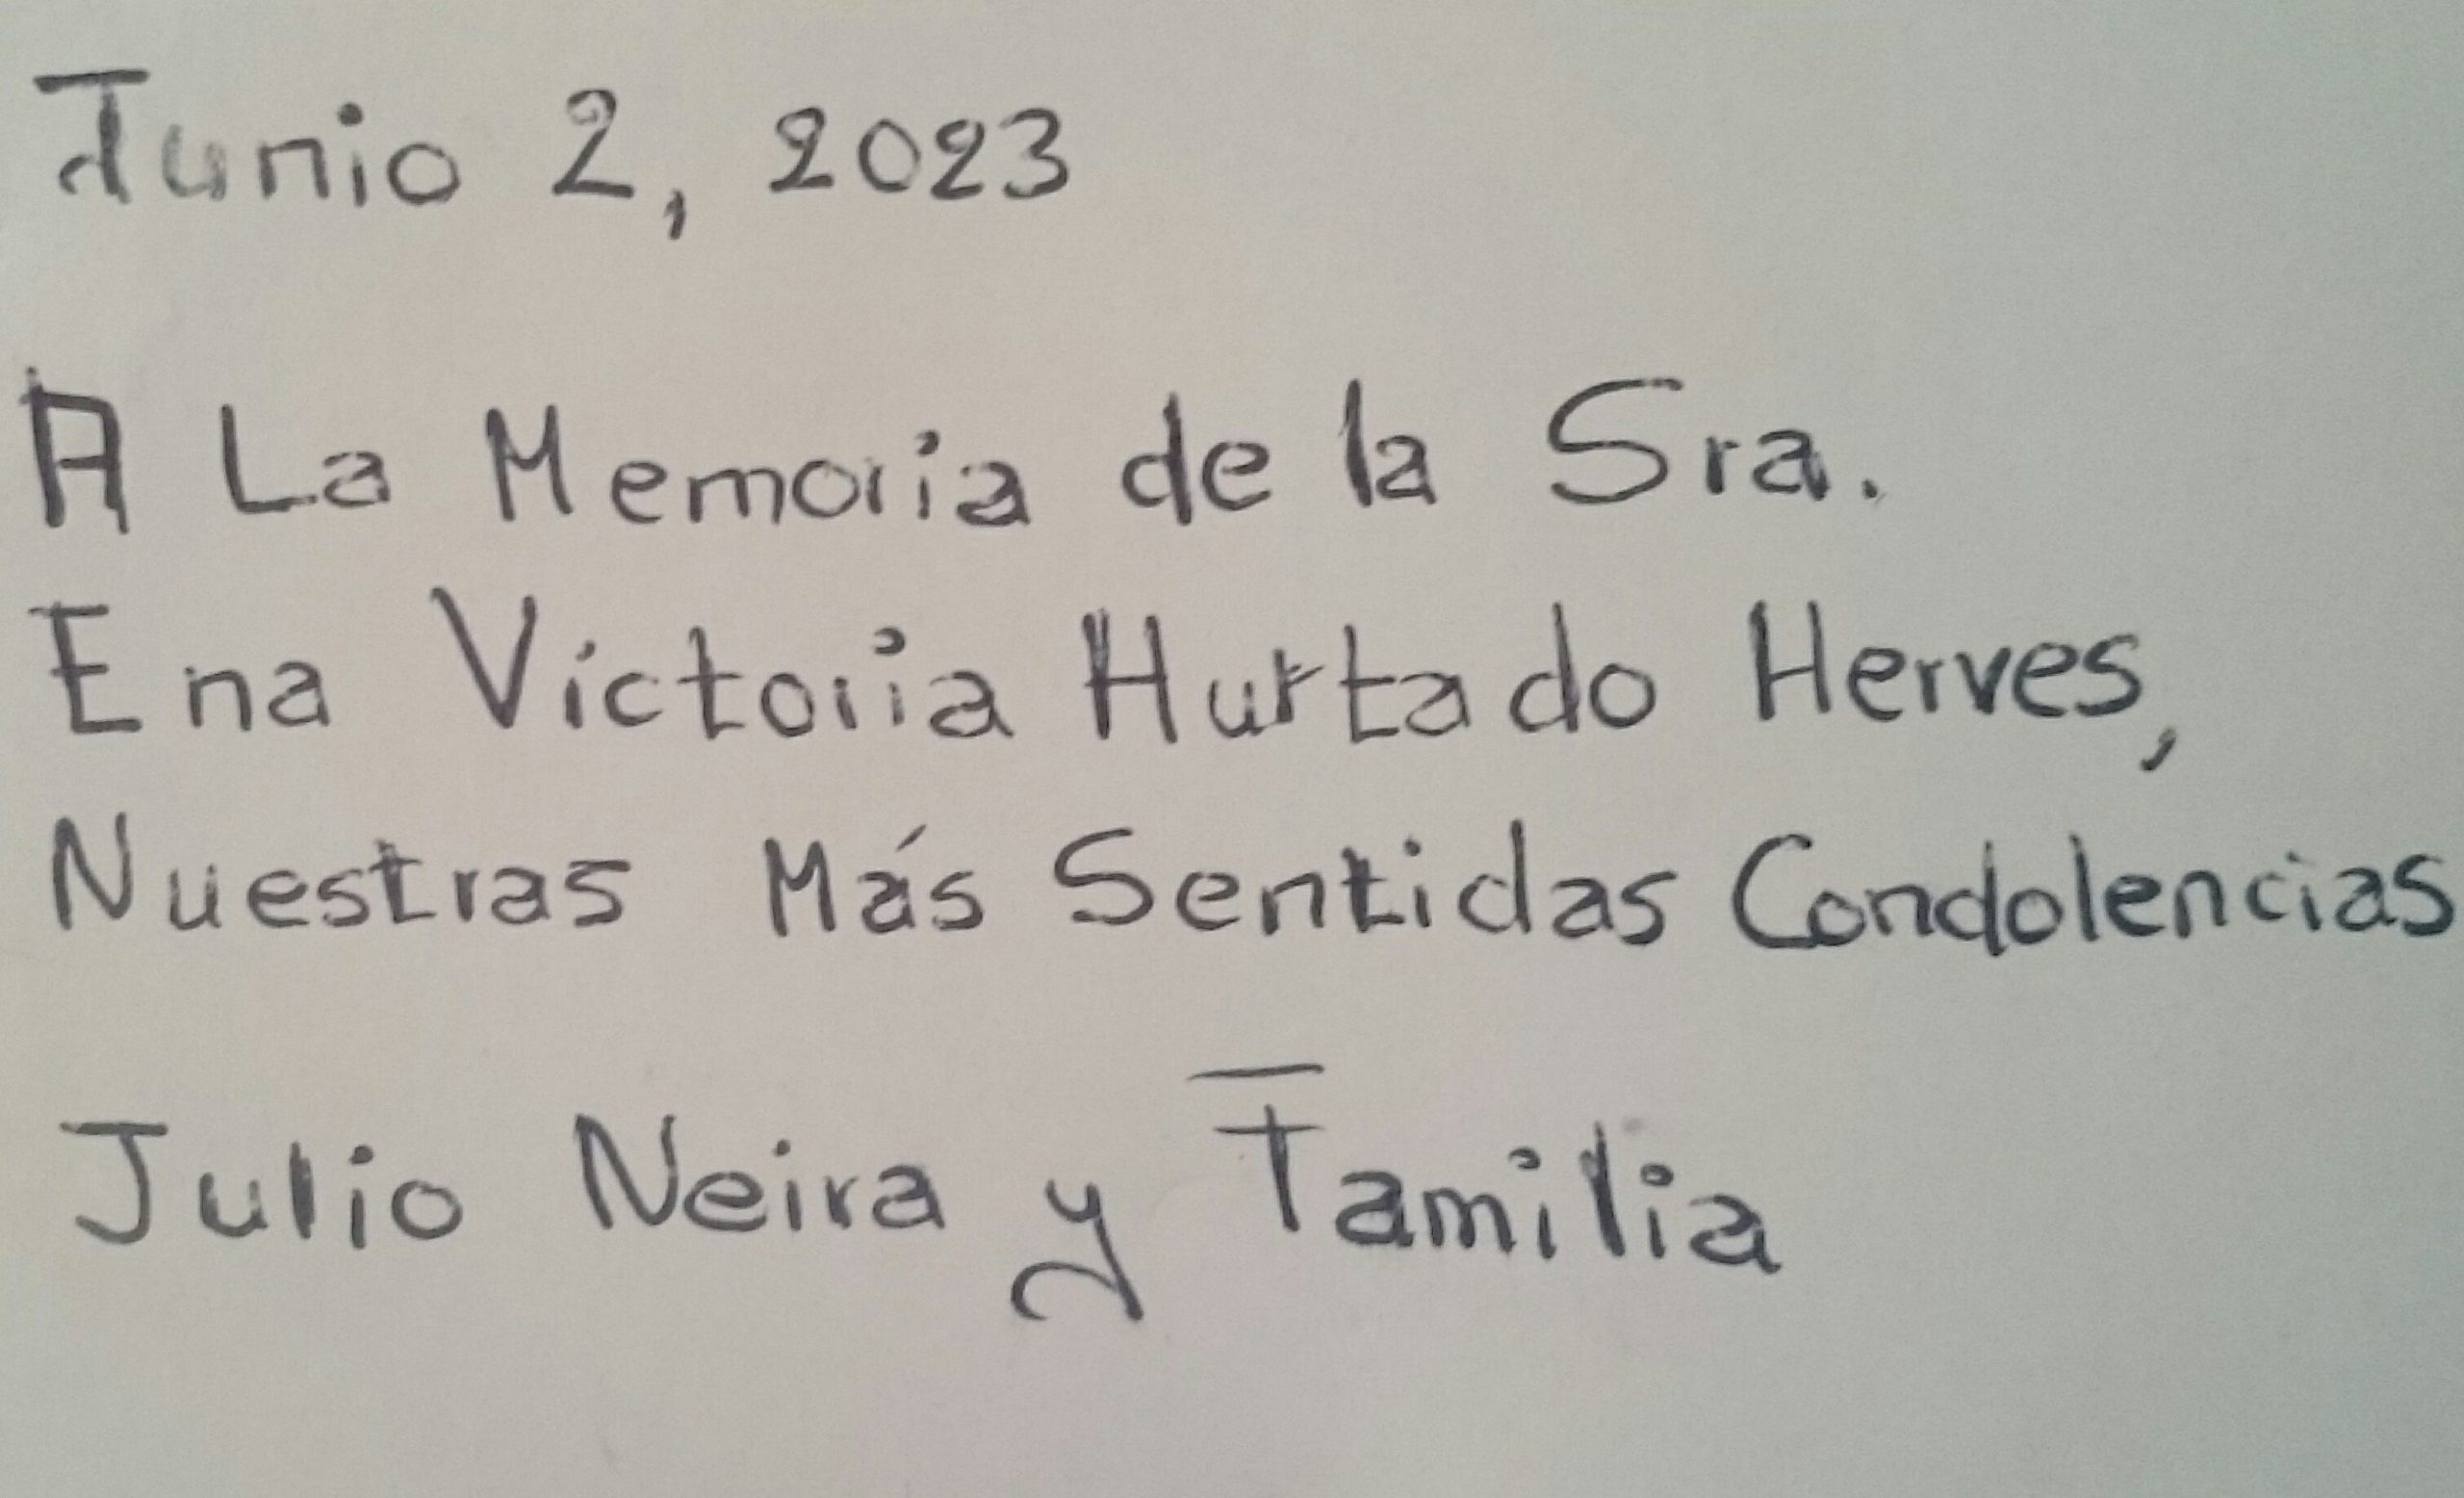 Junio 2, 2023
A La Memoria de la Sra.
Ena Victoria Hurtado Herves,
Nuestras Más Sentidas Condolencias
Julio Neira y Familia